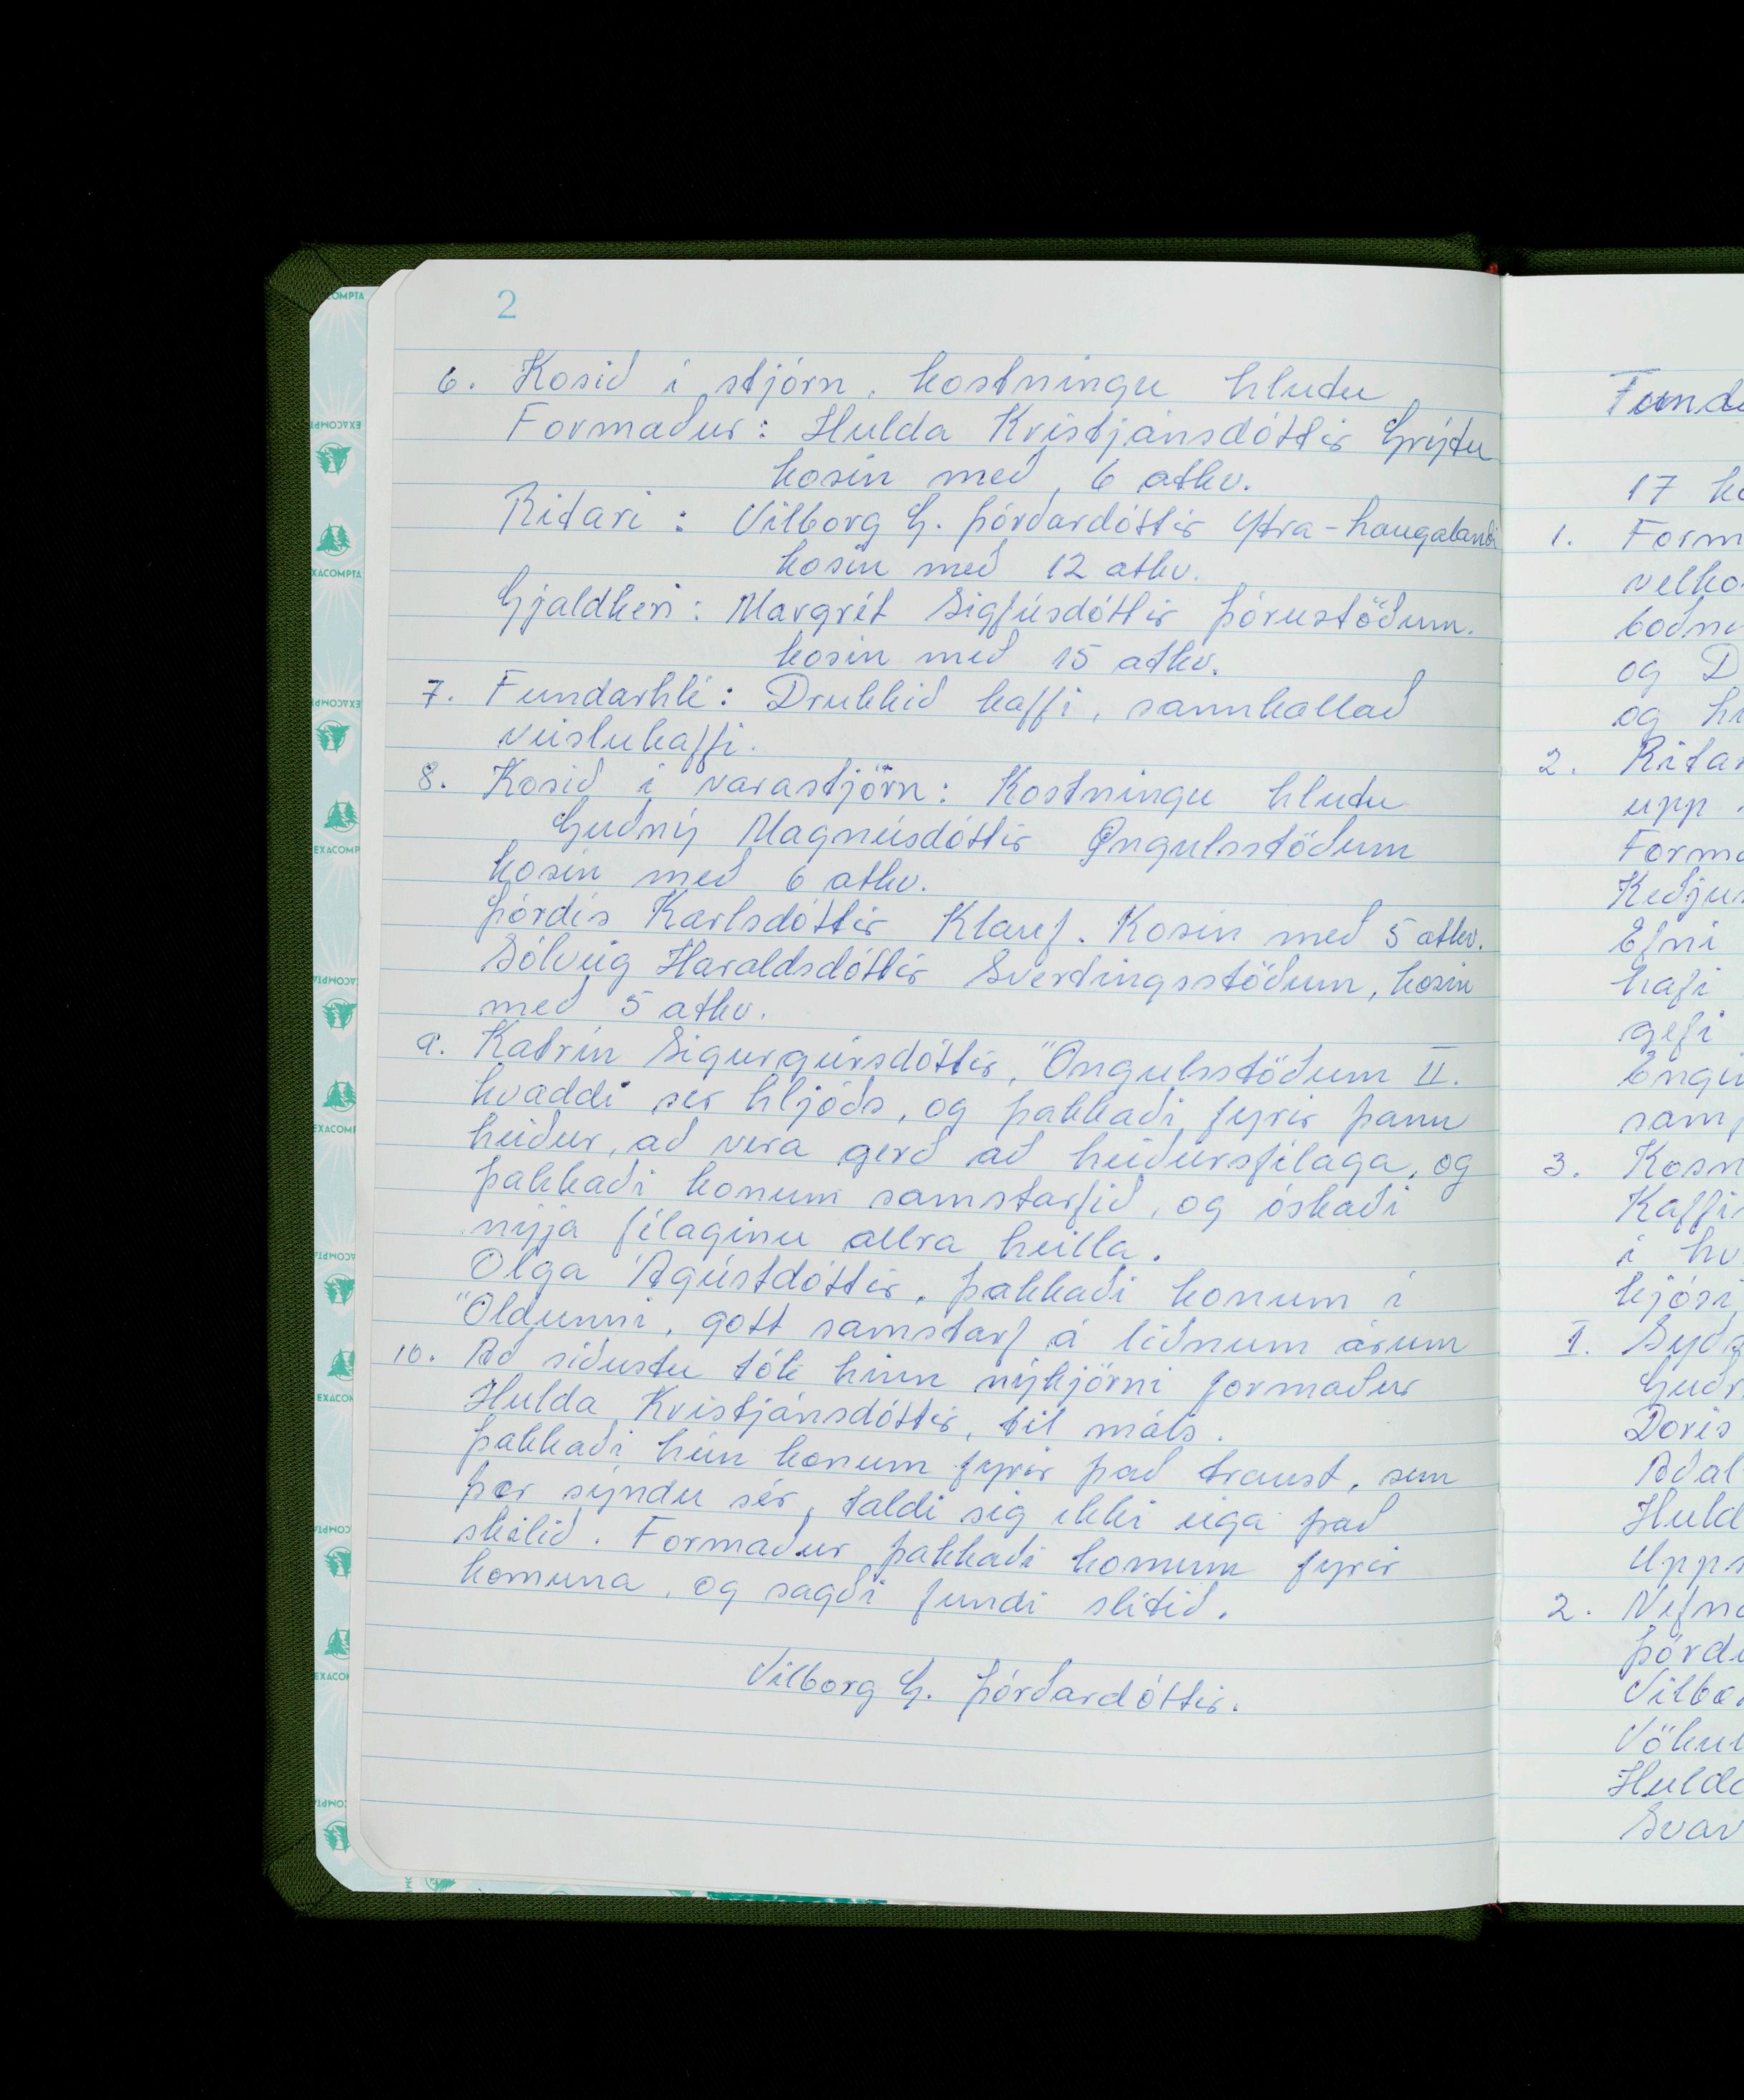 2
6. Kosið í stjórn, kostningu hlutu
Formaður: Hulda Kristjánsdóttir Grýtu
kosin með 6 atkv.
Ritari: Vilborg G. Þórðardóttir Ytra-haugalandi
kosin með 12 atkv.
Gjaldkeri: Margrét Sigfúsdóttir Þórustöðum.
kosin með 15 atkv.
7. Fundarhlé: Drukkið kaffi, sannkallað
veislukaffi.
8. Kosið í varastjórn: Kostningu hlutu
Guðný Magnúsdóttir Öngulsstöðum
kosin með 6 atkv.
Þórdís Karlsdóttir Klauf. Kosin með 5 atkv.
Sólveig Haraldsdóttir Svertingsstöðum, kosin
með 5 atkv.
9. Katrín Sigurgeirsdóttir, Öngulsstöðum II.
kvaddi sér hljóðs, og þakkaði fyrir þann
heiður, að vera gerð að heiðursfélaga, og
þakkaði konum samstarfið, og óskaði
nýja félaginu allra heilla.
Olga Ágústdóttir, þakkaði konum í
Öldunni, gott samstarf á liðnum árum
10. Að síðustu tók hinn nýkjörni formaður
Hulda Kristjánsdóttir, til máls.
Þakkaði hún konum fyrir það traust, sem
þær sýndu sér, taldi sig ekki eiga það
skilið. Formaður þakkaði konum fyrir
komuna, og sagði fundi slitið.
Vilborg G. Þórðardóttir.
17
1. Form
velko
boðnu
og D
og
2. Ritar
upp
Forma
Keðju
Efni
hafi
gefi
Engi
samþ
3. Kosn
Kaffi
í hv
kjósi
1. Syðr
Guðr
Doris
Aðal
Huld
Upps
2. Nefn
Þórd
Vilbo
Vöku
Hulda
Svav
EXACOMPTA